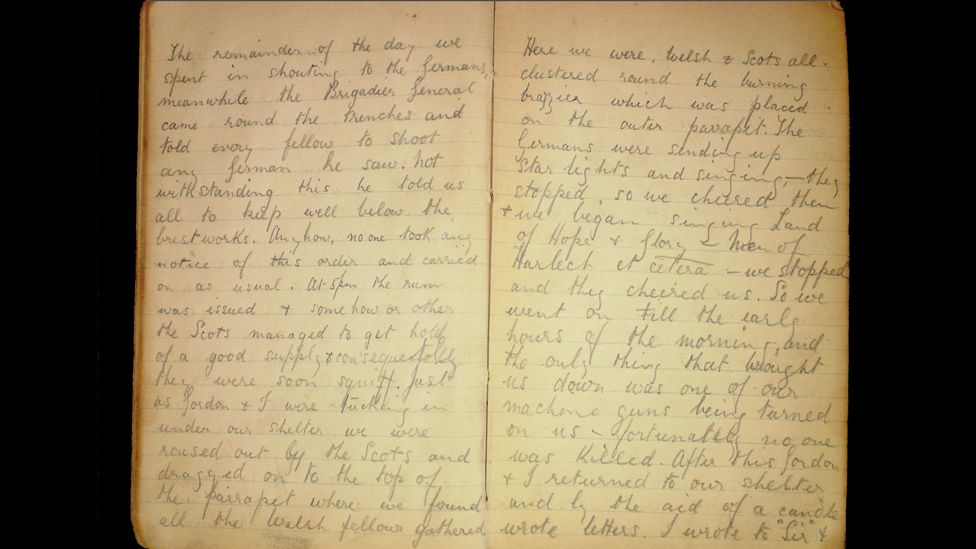 The remainder of the day we
spent in shouting to the Germans,
meanwhile the Brigadier General
came round the trenches and
told every fellow to shoot
any German he saw. Not
withstanding this he told us
all to keep well below the
brestworks. Anyhow, no one took any
notice of this order and carried
on as usual. At 5pm the rum
was issued & somehow or other
the Scots managed to get hold
of a good supply & consequently
they were soon squiff. Just
as Gordon & I were tucking in
under our shelter we were
roused out by the Scots and
dragged on to the top of
the parrapet where we found
all the Welsh fellows gathered.
Here we were, Welsh & Scots all
clustered round the burning
brazier which was placed
on the outer parrapet. The
Germans were sending up
star lights and singing, – they
stopped, so we cheered them
& we began singing Land
of Hope & Glory – Men of
Harlech et cetera – we stopped
and they cheered us. So we
went on till the early
hours of the morning, and
the only thing that brought
us down was one of our
machone guns being turned
on us – fortunately no one
was killed. After this Gordon
& I returned to our shelter
and by the aid of a candle
wrote letters. I wrote to "Sir" &